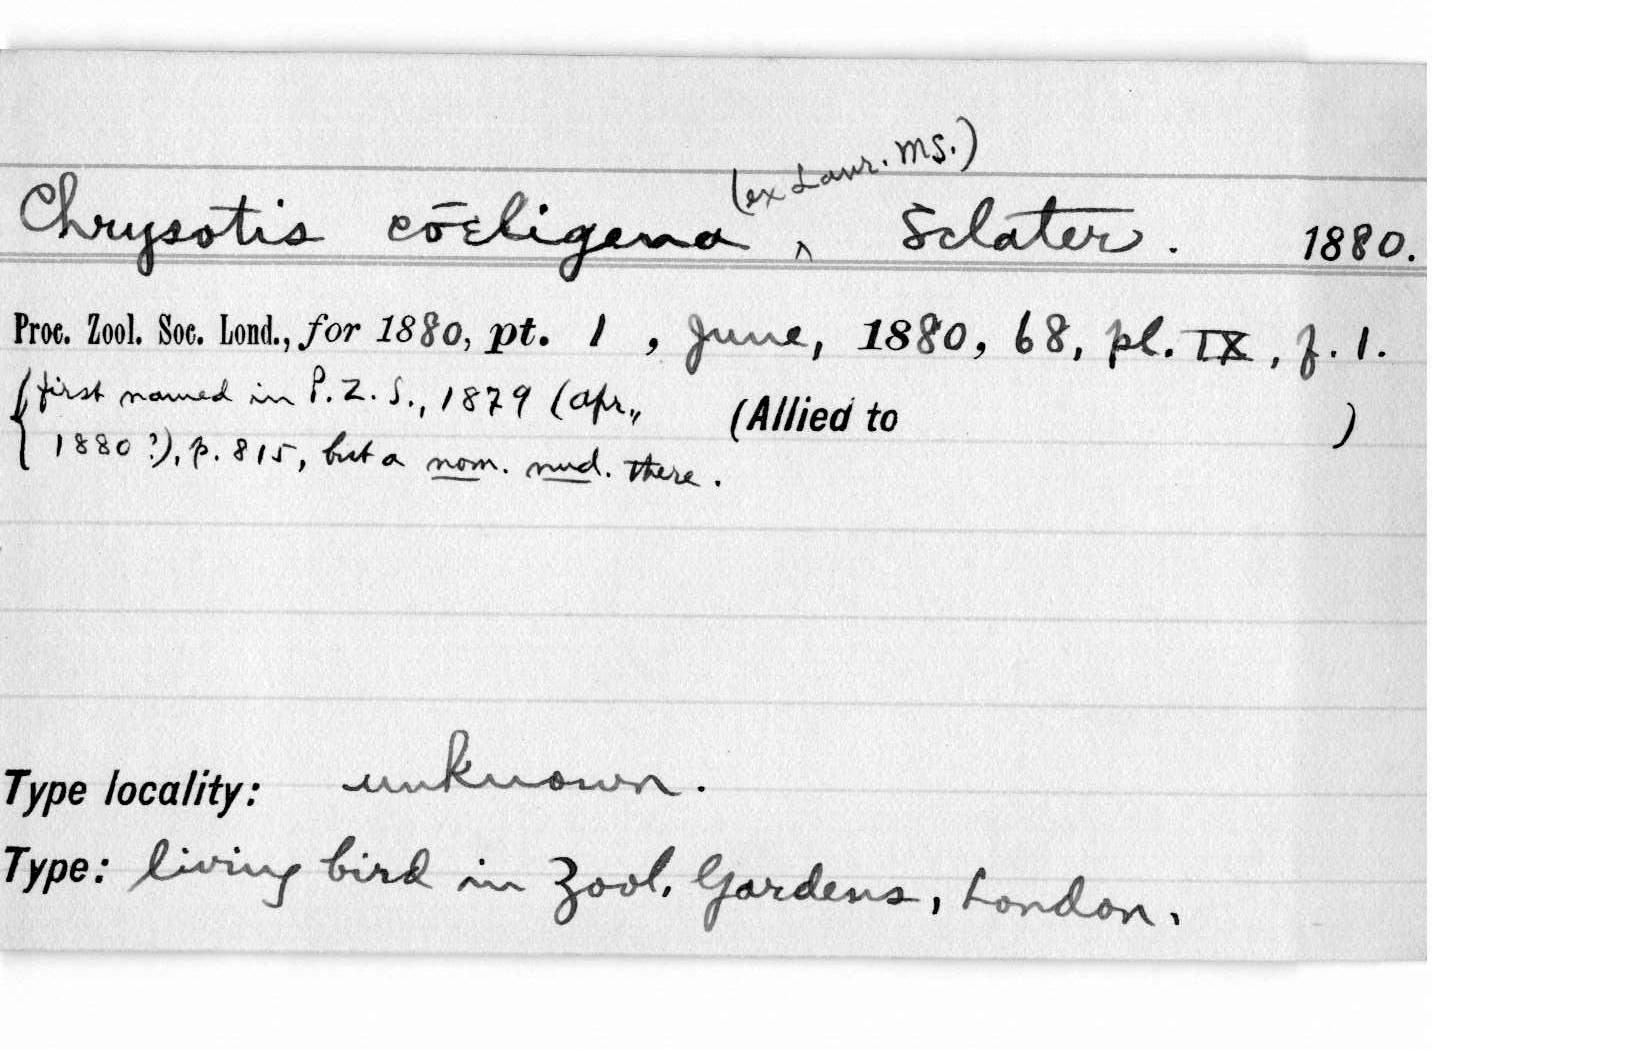 (ex Lawr. MS.)
Chrysotis cœligena ^ Sclater. 1880.
Proc. Zool. Soc. Lond., for 1880, pt. 1, June, 1880, 68, pl. IX, f. 1.
{first named in P. Z. S., 1879 (Apr.,
1880?), p. 815, but a nom. nud. there.
(Allied to )
Type locality: unknown.
Type: living bird in Zool. Gardens, London.